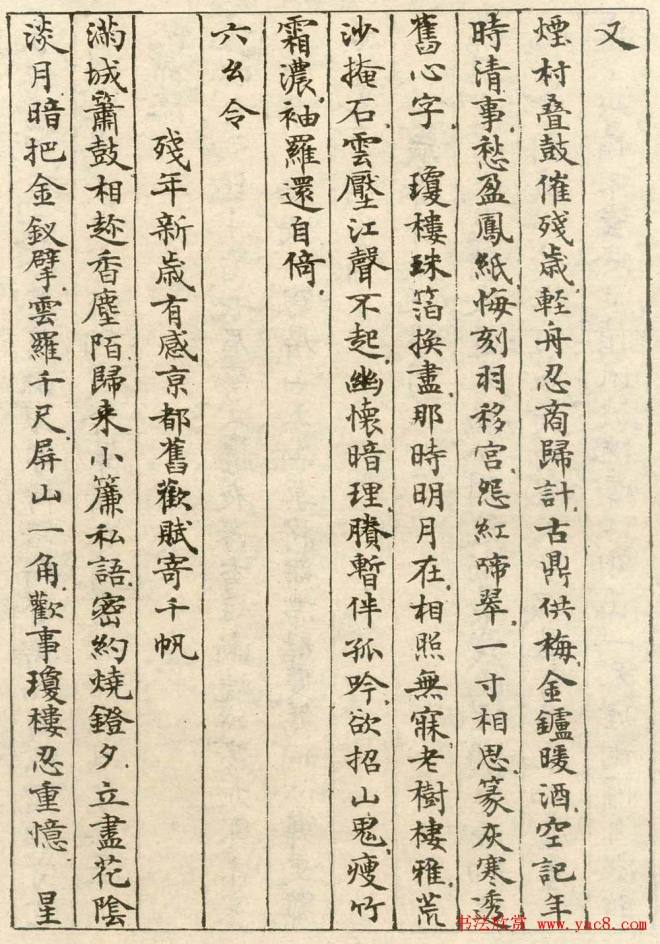 又
煙村疊鼓催殘歲輕舟忍商歸計古鼎供梅金鑪暖酒空記年
時清事愁盈鳳紙悔刻羽移宮怨紅啼翠一寸相思篆灰寒透
舊心字　瓊樓珠箔換盡那時明月在相照無寐老樹棲雅荒
沙掩石雲壓江聲不起幽懷暗理賸暫伴孤吟欲招山鬼瘦竹
霜濃袖羅還自倚
六幺令
殘年新歲有感京都舊歡賦寄千帆
滿城簫鼓相趁香塵陌歸来小簾私語密約燒鐙夕立盡花陰
淡月暗把金釵擘雲羅千尺屏山一角歡事瓊樓忍重憶　星
书法欣赏 www.yac8.com